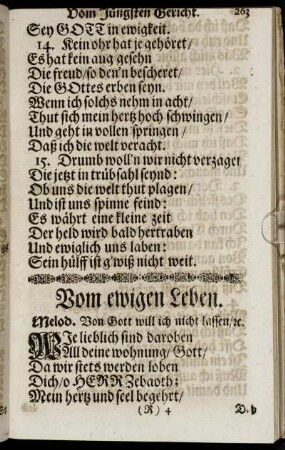 Vom Jüngsten Gericht. 263
Sey GOTT in ewigkeit.
14. Kein ohr hat je gehöret/
Es hat kein aug gesehn
Die freud/ so den'n bescheret/
Die GOttes erben seyn.
Wenn ich solchs nehm in acht/
Thut sich mein hertz hoch schwingen/
Und geht in vollen springen/
Daß ich die welt veracht.
15. Drumb woll'n wir nicht verzagen
Die jetzt in trübsahl seynd:
Ob uns die welt thut plagen/
Und ist uns spinne feind:
Es währt eine kleine zeit
Der held wird bald hertraben
Und ewiglich uns laben:
Sein hülff ist g'wiß nicht weit.
Vom ewigen Leben.
Melod. Von Gott will ich nicht lassen/ ꝛc.
WJe lieblich sind daroben
All deine wohnung/ Gott/
Da wir stets werden loben
Dich/ o HERR Zebaoth;
Mein hertz und seel begehrt/
(R) 4 D. h